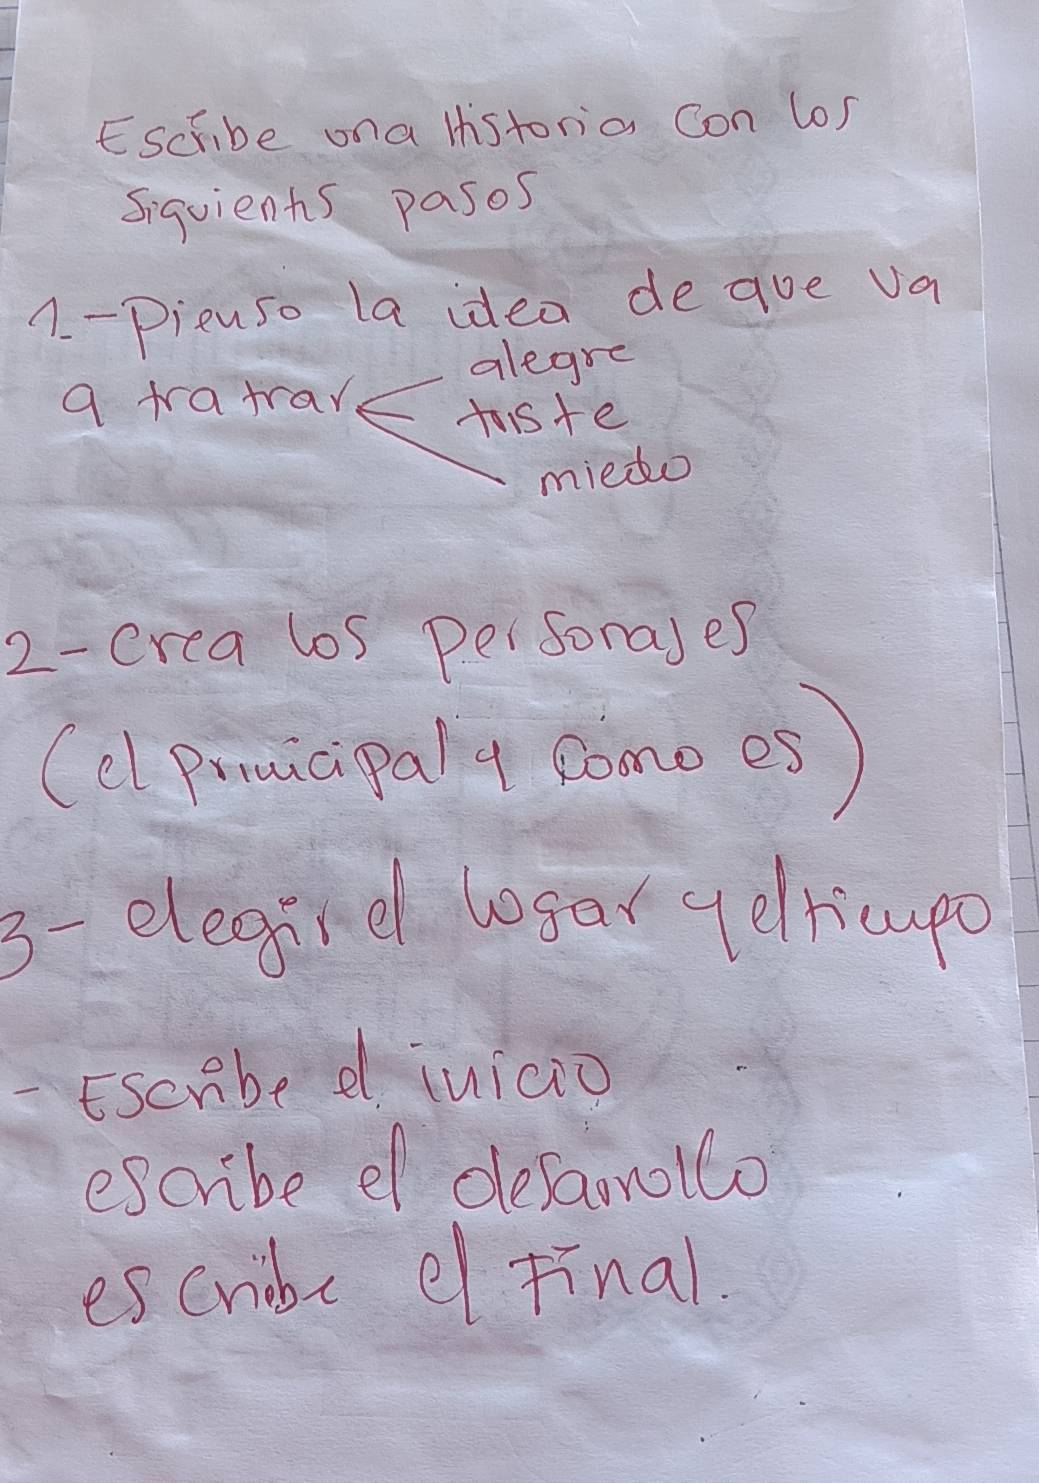 Escribe una Historia con los
siguientes pasos
1-Pienso la idea de que va
a tratrar
alegre
triste
miedo
2-Crea los personajes
(el principal y como es)
3-elegir el lugar y el tiempo
-Escribe el inicio
escribe el desarrollo
escribe el Final.